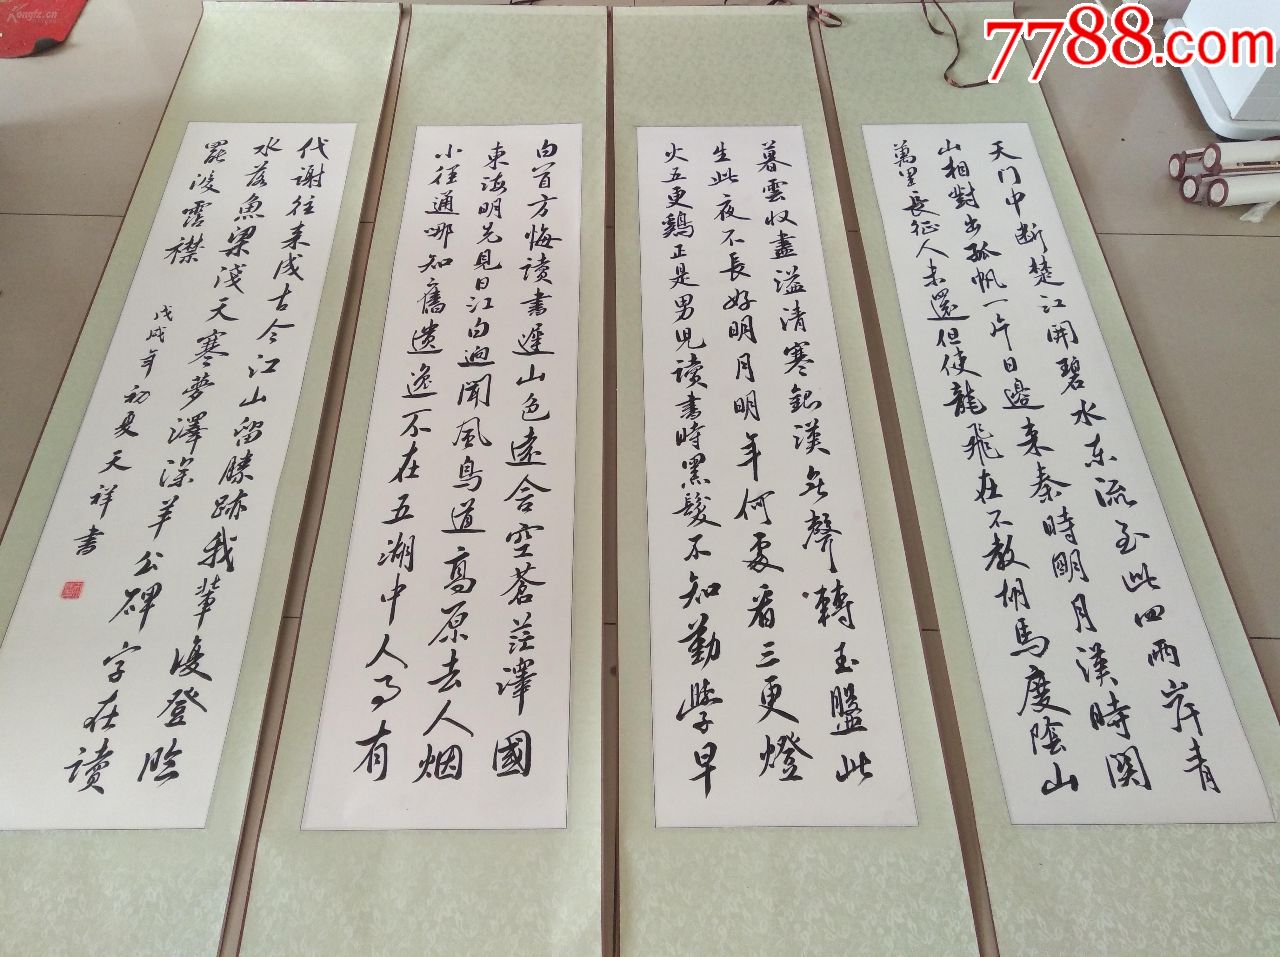 天门中断楚江開碧水东流至此回兩岸青
山相對出孤帆一片日邊来秦時明月漢時関
萬里長征人未還但使龍飛在不教胡馬度陰山
暮雲收盡溢清寒銀漢無聲轉玉盤此
生此夜不長好明月明年何處看三更燈
火五更鷄正是男児读書時黑髮不知勤學早
白首方悔读書遲山色遠含空蒼茫澤國
東海明先見日江白迥聞風鳥道高原去人烟
小徑通哪知舊遗逸不在五湖中人事有
代谢往来成古今江山留勝跡我輩復登臨
水落魚梁淺天寒夢澤深羊公碑字在读
罷淚霑襟
戊戌年初夏天祥書
7788.com
Kongfz.cn